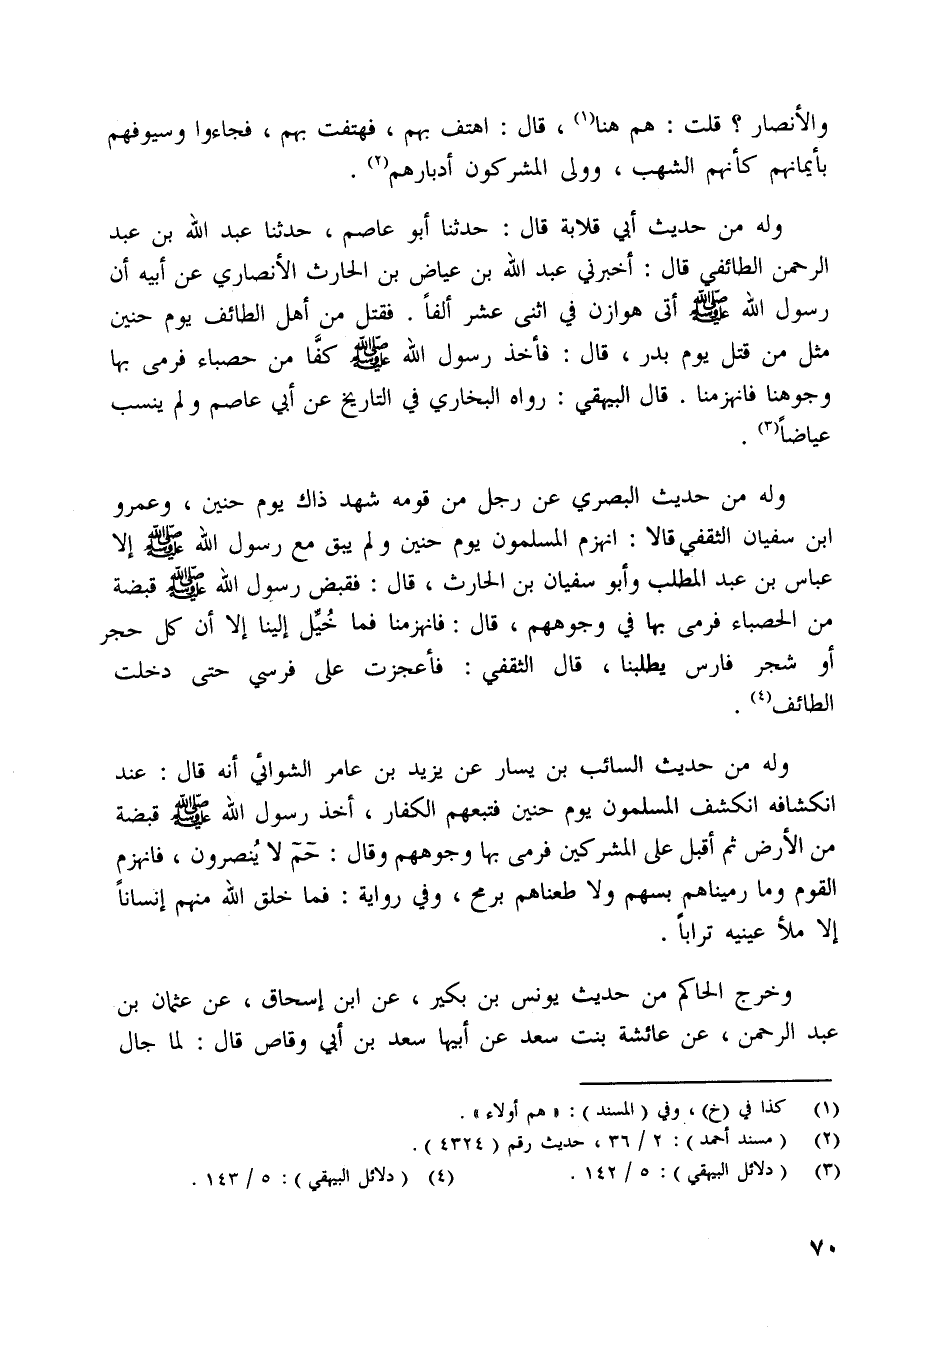 والأنصار ؟ قلت : هم هنا(١) ، قال : اهتف بهم ، فهتفت بهم ، فجاءوا وسيوفهم
بأيمانهم كأنهم الشهب ، وولى المشركون أدبارهم(٢) .
وله من حديث أبي قلابة قال : حدثنا أبو عاصم ، حدثنا عبد الله بن عبد
الرحمن الطائفي قال : أخبرني عبد الله بن عياض بن الحارث الأنصاري عن أبيه أن
رسول الله ﷺ أتى هوازن في اثنى عشر ألفاً . فقتل من أهل الطائف يوم حنين
مثل من قتل يوم بدر ، قال : فأخذ رسول الله ﷺ كفَّا من حصباء فرمى بها
وجوهنا فانهزمنا . قال البيهقي : رواه البخاري في التاريخ عن أبي عاصم ولم ينسب
عياضاً(٣) .
وله من حديث البصري عن رجل من قومه شهد ذاك يوم حنين ، وعمرو
ابن سفيان الثقفي قالا : انهزم المسلمون يوم حنين ولم يبق مع رسول الله ﷺ إلا
عباس بن عبد المطلب وأبو سفيان بن الحارث ، قال : فقبض رسول الله ﷺ قبضة
من الحصباء فرمى بها في وجوههم ، قال : فانهزمنا فما خُيِّل إلينا إلا أن كل حجر
أو شجر فارس يطلبنا ، قال الثقفي : فأعجزت على فرسي حتى دخلت
الطائف(٤) .
وله من حديث السائب بن يسار عن يزيد بن عامر الشوائي أنه قال : عند
انكشافه انكشف المسلمون يوم حنين فتبعهم الكفار ، أخذ رسول الله ﷺ قبضة
من الأرض ثم أقبل على المشركين فرمى بها وجوههم وقال : حَمَ لا يُنصرون ، فانهزم
القوم وما رميناهم بسهم ولا طعناهم برمح ، وفي رواية : فما خلق الله منهم إنساناً
إلا ملأ عينيه تراباً .
وخرج الحاكم من حديث يونس بن بكير ، عن ابن إسحاق ، عن عثمان بن
عبد الرحمن ، عن عائشة بنت سعد عن أبيها سعد بن أبي وقاص قال : لما جال
(١) كذا في (خ) ، وفي ( المسند ) : « هم أولاء » .
(٢) ( مسند أحمد ) : ٢ / ٣٦ ، حديث رقم ( ٤٣٢٤ ) .
(٣) ( دلائل البيهقي ) : ٥ / ١٤٢ . (٤) ( دلائل البيهقي ) : ٥ / ١٤٣ .
٧٠